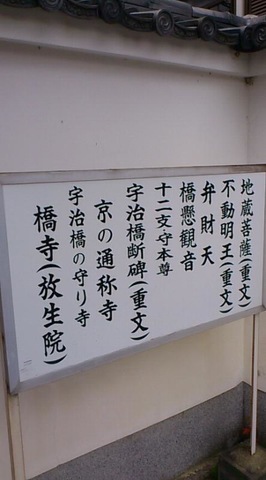 地蔵菩薩(重文)
不動明王(重文)
弁財天
橋懸観音
十二支守本尊
宇治橋断碑(重文)
京の通称寺
宇治橋の守り寺
橋寺(放生院)